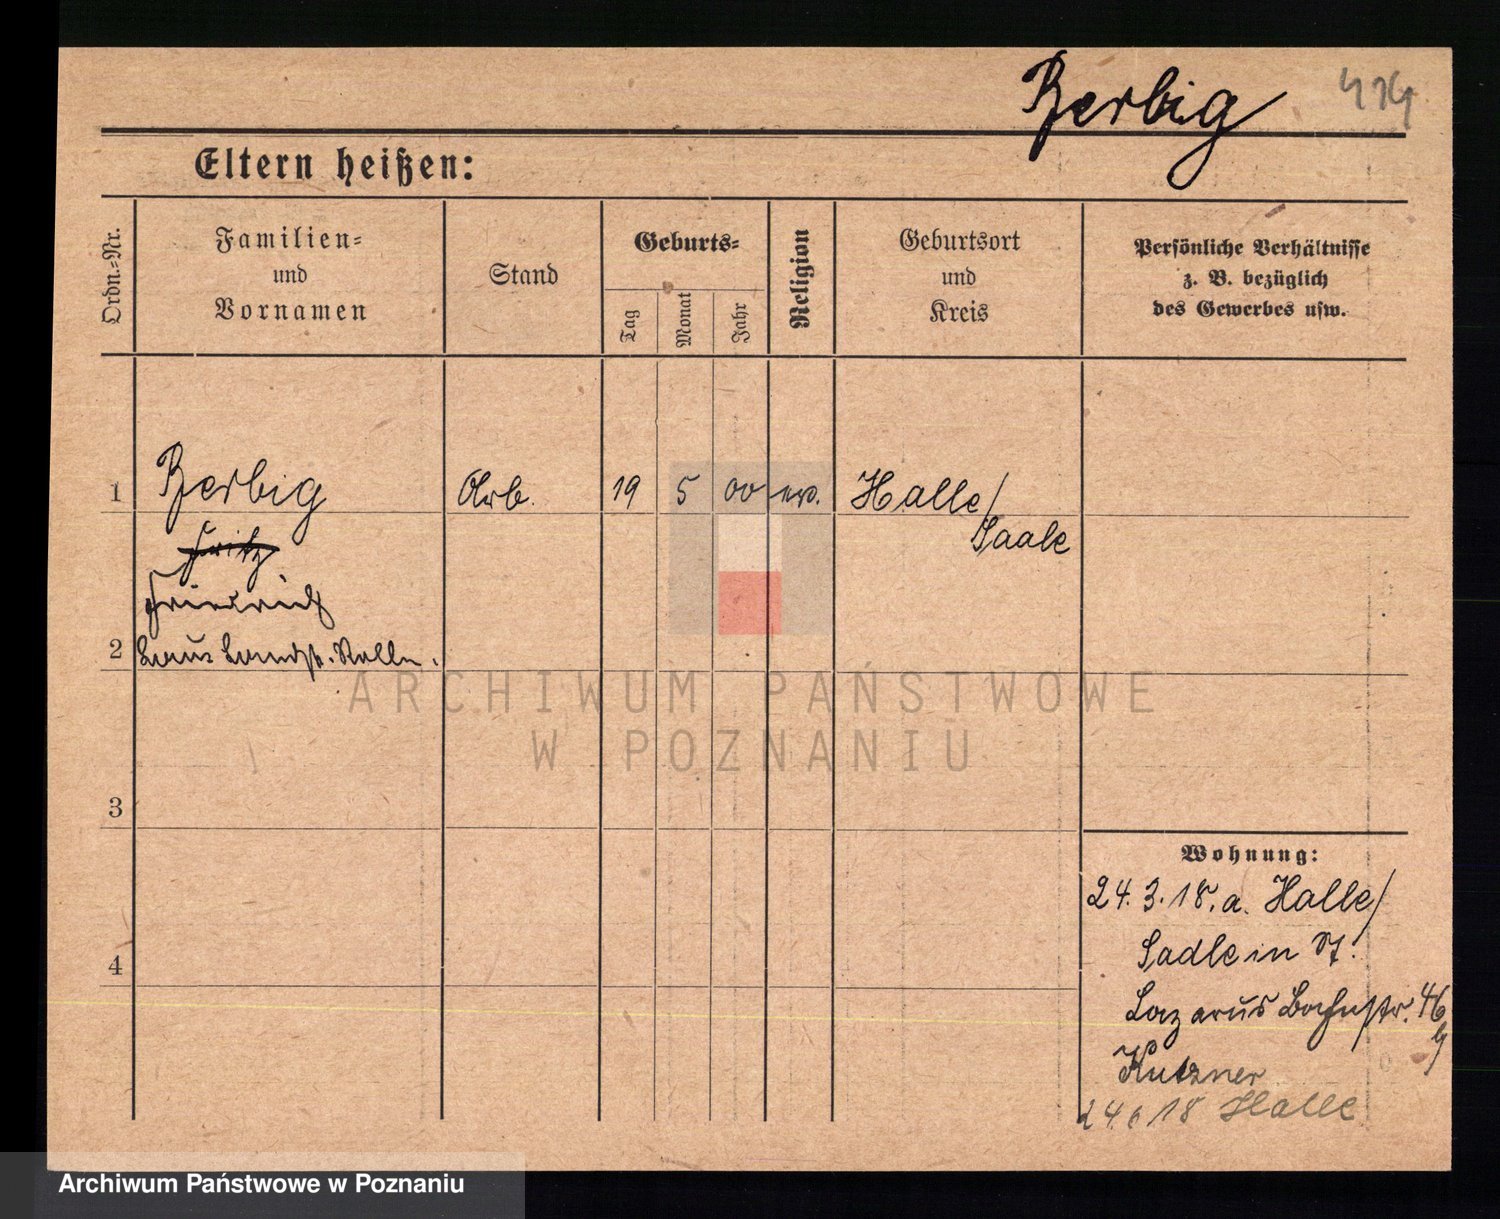 Zerbig 414
Eltern heißen:
Ordn.-Nr.
Familien-
und
Vornamen
Stand
Geburts-
Tag
Monat
Jahr
Religion
Geburtsort
und
Kreis
Persönliche Verhältnisse
z. B. bezüglich
des Gewerbes usw.
1 Zerbig Arb. 19 5 00 ev. Halle/
Saale
Fritz
Friedrich
2 Landst. Rolle.
3
4
Wohnung:
24.3.18. a. Halle/
Saale in St.
Lazarus Bahnstr. 46
Kutzner
24.6 18 Halle
ARCHIWUM PAŃSTWOWE
W POZNANIU
Archiwum Państwowe w Poznaniu